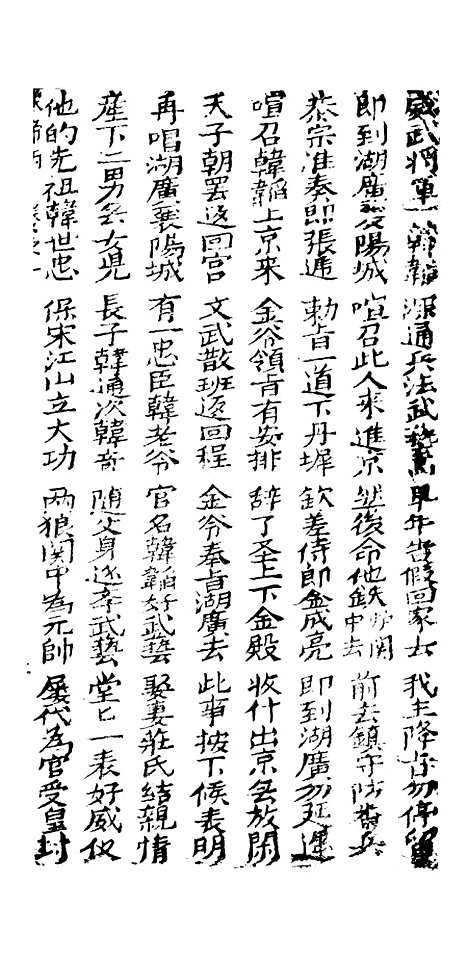 威武將軍韓韜 深通兵法武藝高 早年告假回家去 我主降旨勿停留
即到湖廣襄陽城 喧召此人來進京 然後命他鉄中去 前去鎮守防番兵
泰宗准奏即張遞 勅旨一道下丹墀 欽差侍郎金成亮 即到湖廣勿延遲
喧召韓韜上京來 金爷領旨有安排 辞了圣上下金殿 收什出京無放閑
天子朝罢返回宮 文武散班返回程 金爷奉旨湖廣去 此事披下候表明
再唱湖廣襄陽城 有一忠臣韓老爷 官名韓韜好武藝 娶妻莊氏結親情
產下二男無女児 長子韓通次韓奇 随父身边李武藝 堂匕一表好威仪
他的先祖韓世忠 保宋江山立大功 两狼関中為元帥 屡代為官受皇封